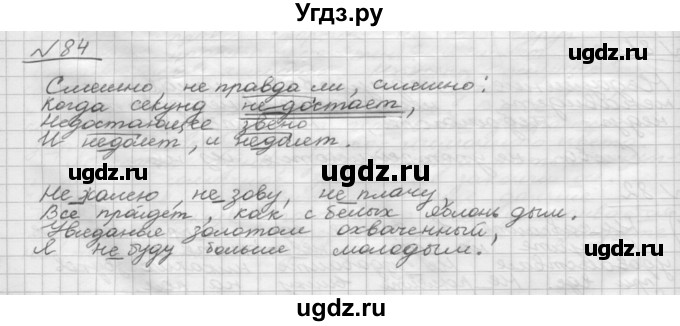 Угдз.ру
ugdz.ru
№84
Смешно, не правда ли, смешно:
Когда секунд не достаёт,
Недостающее звено
И недоест, и недопьёт.
Не жалею, не зову, не плачу
Всё пройдёт, как с белых яблонь дым.
Увяданья золотом охваченный,
Я не буду больше молодым.
ugdz.ru
ugdz.ru
ugdz.ru
ugdz.ru
ugdz.ru